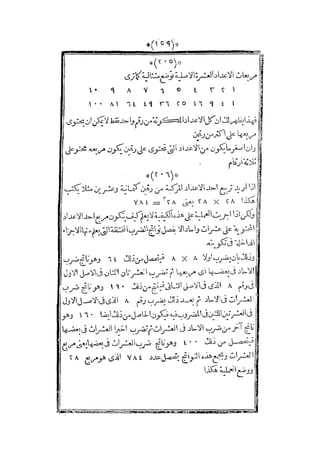 *(١٥٩)*
*(٢٠٥)*
مربعات الاعداد العشرة الاصلية توضع متتالية كما ترى
١ ٢ ٣ ٤ ٥ ٦ ٧ ٨ ٩ ١٠
١ ٤ ٩ ١٦ ٢٥ ٣٦ ٤٩ ٦٤ ٨١ ١٠٠
فهذا يظهر لك ان كل الاعداد المتكونة من رقم واحد فقط لا يمكن ان يحتوى
مربعها على اكثر من رقمين
وان اصغر ما يكون من الاعداد التى تحتوى على رقمين يكون مربعه محتوى على
ثلاثة ارقام
*(٢٠٦)*
اذا أريد تربيع احد الاعداد المركبة من رقمين كثمانية وعشرين مثلا يكتب
هكذا ٢٨ × ٢٨ يعنى ٢٨ = ٧٨٤
ولكن اذا اجريت العملية على هذه الكيفية لا يعلم كيف يتكون مربع احد الاعداد
المحتوية على عشرات واحاد الا بفصل نواتج الضرب المختلفة التى يعلم منها الاجزاء
الداخلة فى تكوينه
وذلك بان يضرب اولا ٨ × ٨ فيتحصل من ذلك ٦٤ وهو ناتج ضرب
الاحاد فى بعضها اى مربعها ثم تضرب العشرتان اللتان فى الاصل الاول
فى رقم ٨ الذى فى الاصل الثانى فينتج من ذلك ١٦٠ وهو ناتج ضرب
العشرات فى الاحاد ثم بعد ذلك يضرب رقم ٨ الذى فى الاصل الاول
فى العشرتين اللتين فى المضروب فيه فيكون الحاصل من ذلك ايضا ١٦٠ وهو
ناتج آخر من ضرب الاحاد فى العشرات ثم تضرب اخيرا العشرات فى بعضها
فيتحصل من ذلك ٤٠٠ وهو ناتج ضرب العشرات فى بعضها يعنى مربع
العشرات وبجمع هذه النواتج يتحصل عدد ٧٨٤ الذى هو مربع ٢٨
ووضع العملية هكذا